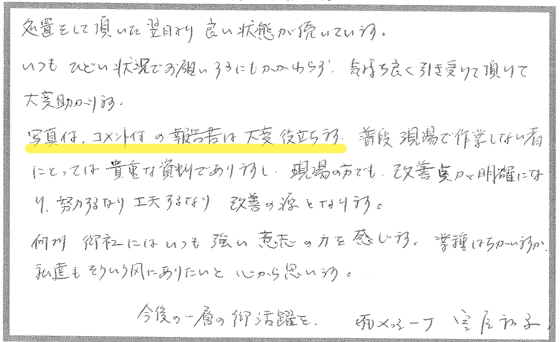 処置をして頂いた翌日より良い状態が続いています。
いつもひどい状況でお願いするにもかかわらず、気持ち良く引き受けて頂けて
大変助かります。
写真付、コメント付の報告書は大変役立ちます。普段現場で作業しない者
にとっては貴重な資料でありますし、現場の方でも、改善点が明確にな
り、努力するなり工夫するなり改善の源となります。
何より御社にはいつも強い意志の力を感じます。業種はちがいますが、
私達もそういう風にありたいと心から思います。
今後の一層の御活躍を。